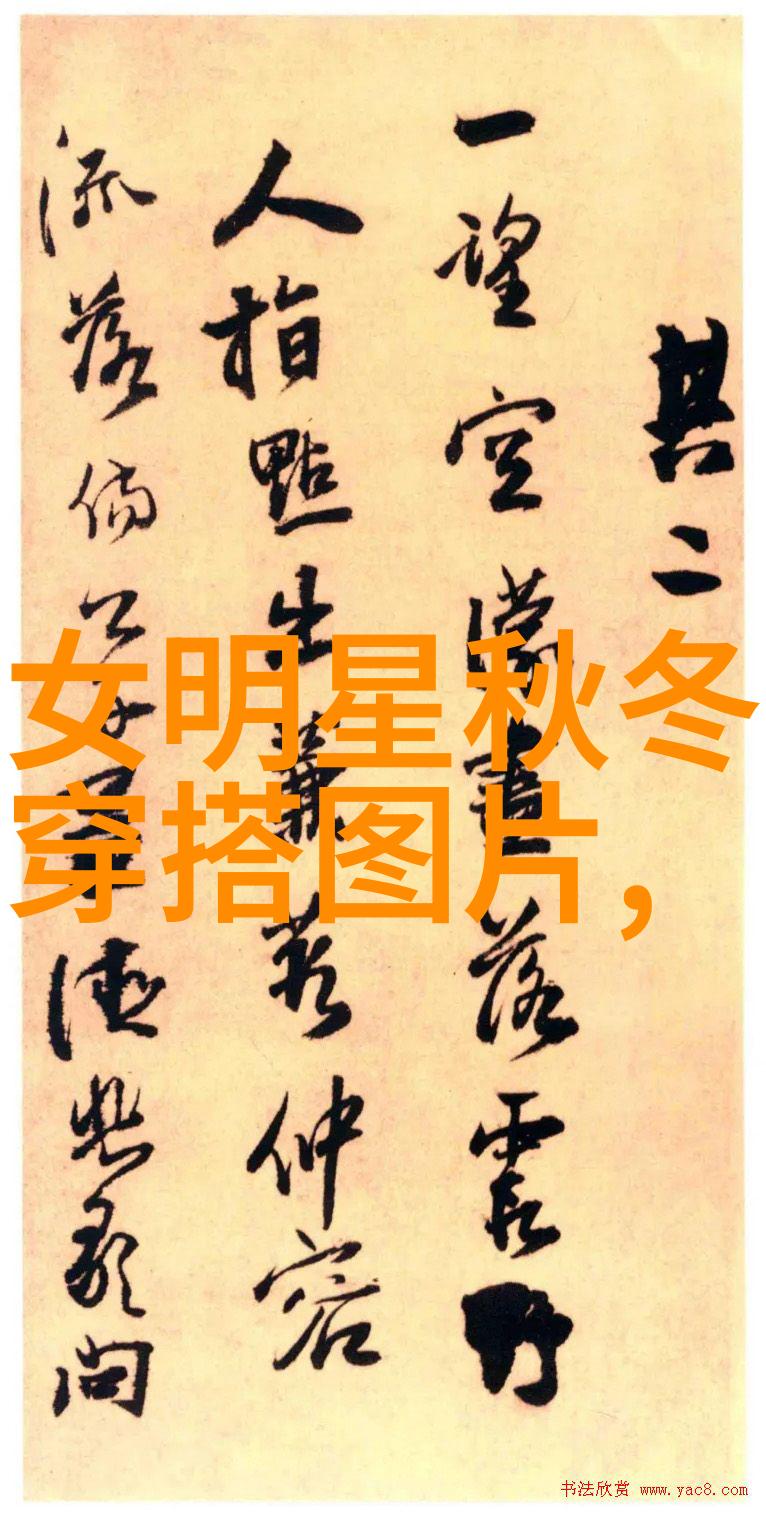 其二
一望空濛落霞野
人指點出仲容
流落倘公子憑問
女明星秋冬
穿搭图片,
书法欣赏 www.yac8.com